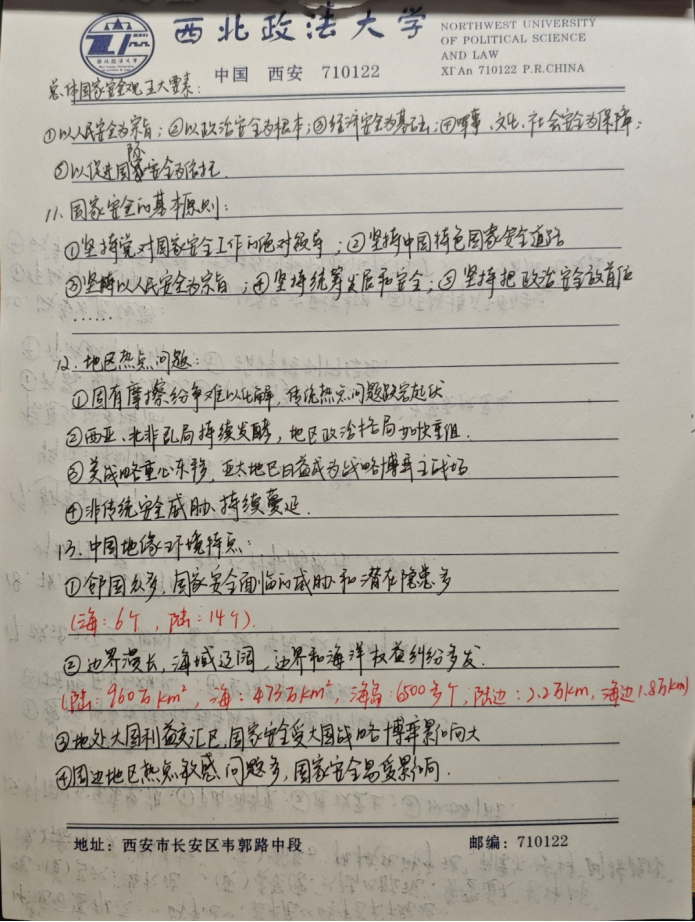 西北政法大学
NORTHWEST UNIVERSITY
OF POLITICAL SCIENCE
AND LAW
中国 西安 710122
XI'An 710122 P.R.CHINA
总体国家安全观五大要素:
①以人民安全为宗旨;②以政治安全为根本;③经济安全为基础;④军事、文化、社会安全为保障;
⑤以促进国际安全为依托.
11.国家安全的基本原则:
①坚持党对国家安全工作的绝对领导;②坚持中国特色国家安全道路
③坚持以人民安全为宗旨;④坚持统筹发展和安全;⑤坚持把政治安全放首位
......
12.地区热点问题:
①固有摩擦纷争难以化解,传统热点问题跌宕起伏
②西亚、北非乱局持续发酵,地区政治格局加快重组.
③美战略重心东移,亚太地区日益成为战略博弈主战场
④非传统安全威胁持续蔓延.
13.中国地缘环境特点:
①邻国众多,国家安全面临的威胁和潜在隐患多
(海:6个,陆:14个).
②边界漫长,海域辽阔,边界和海洋权益纠纷多发.
(陆:960万km²,海:473万km²,海岛:6500多个,陆边:2.2万km,海边1.8万km)
③地处大国利益交汇区,国家安全受大国战略博弈影响大
④周边地区热点敏感问题多,国家安全易受影响.
地址:西安市长安区韦郭路中段 邮编:710122